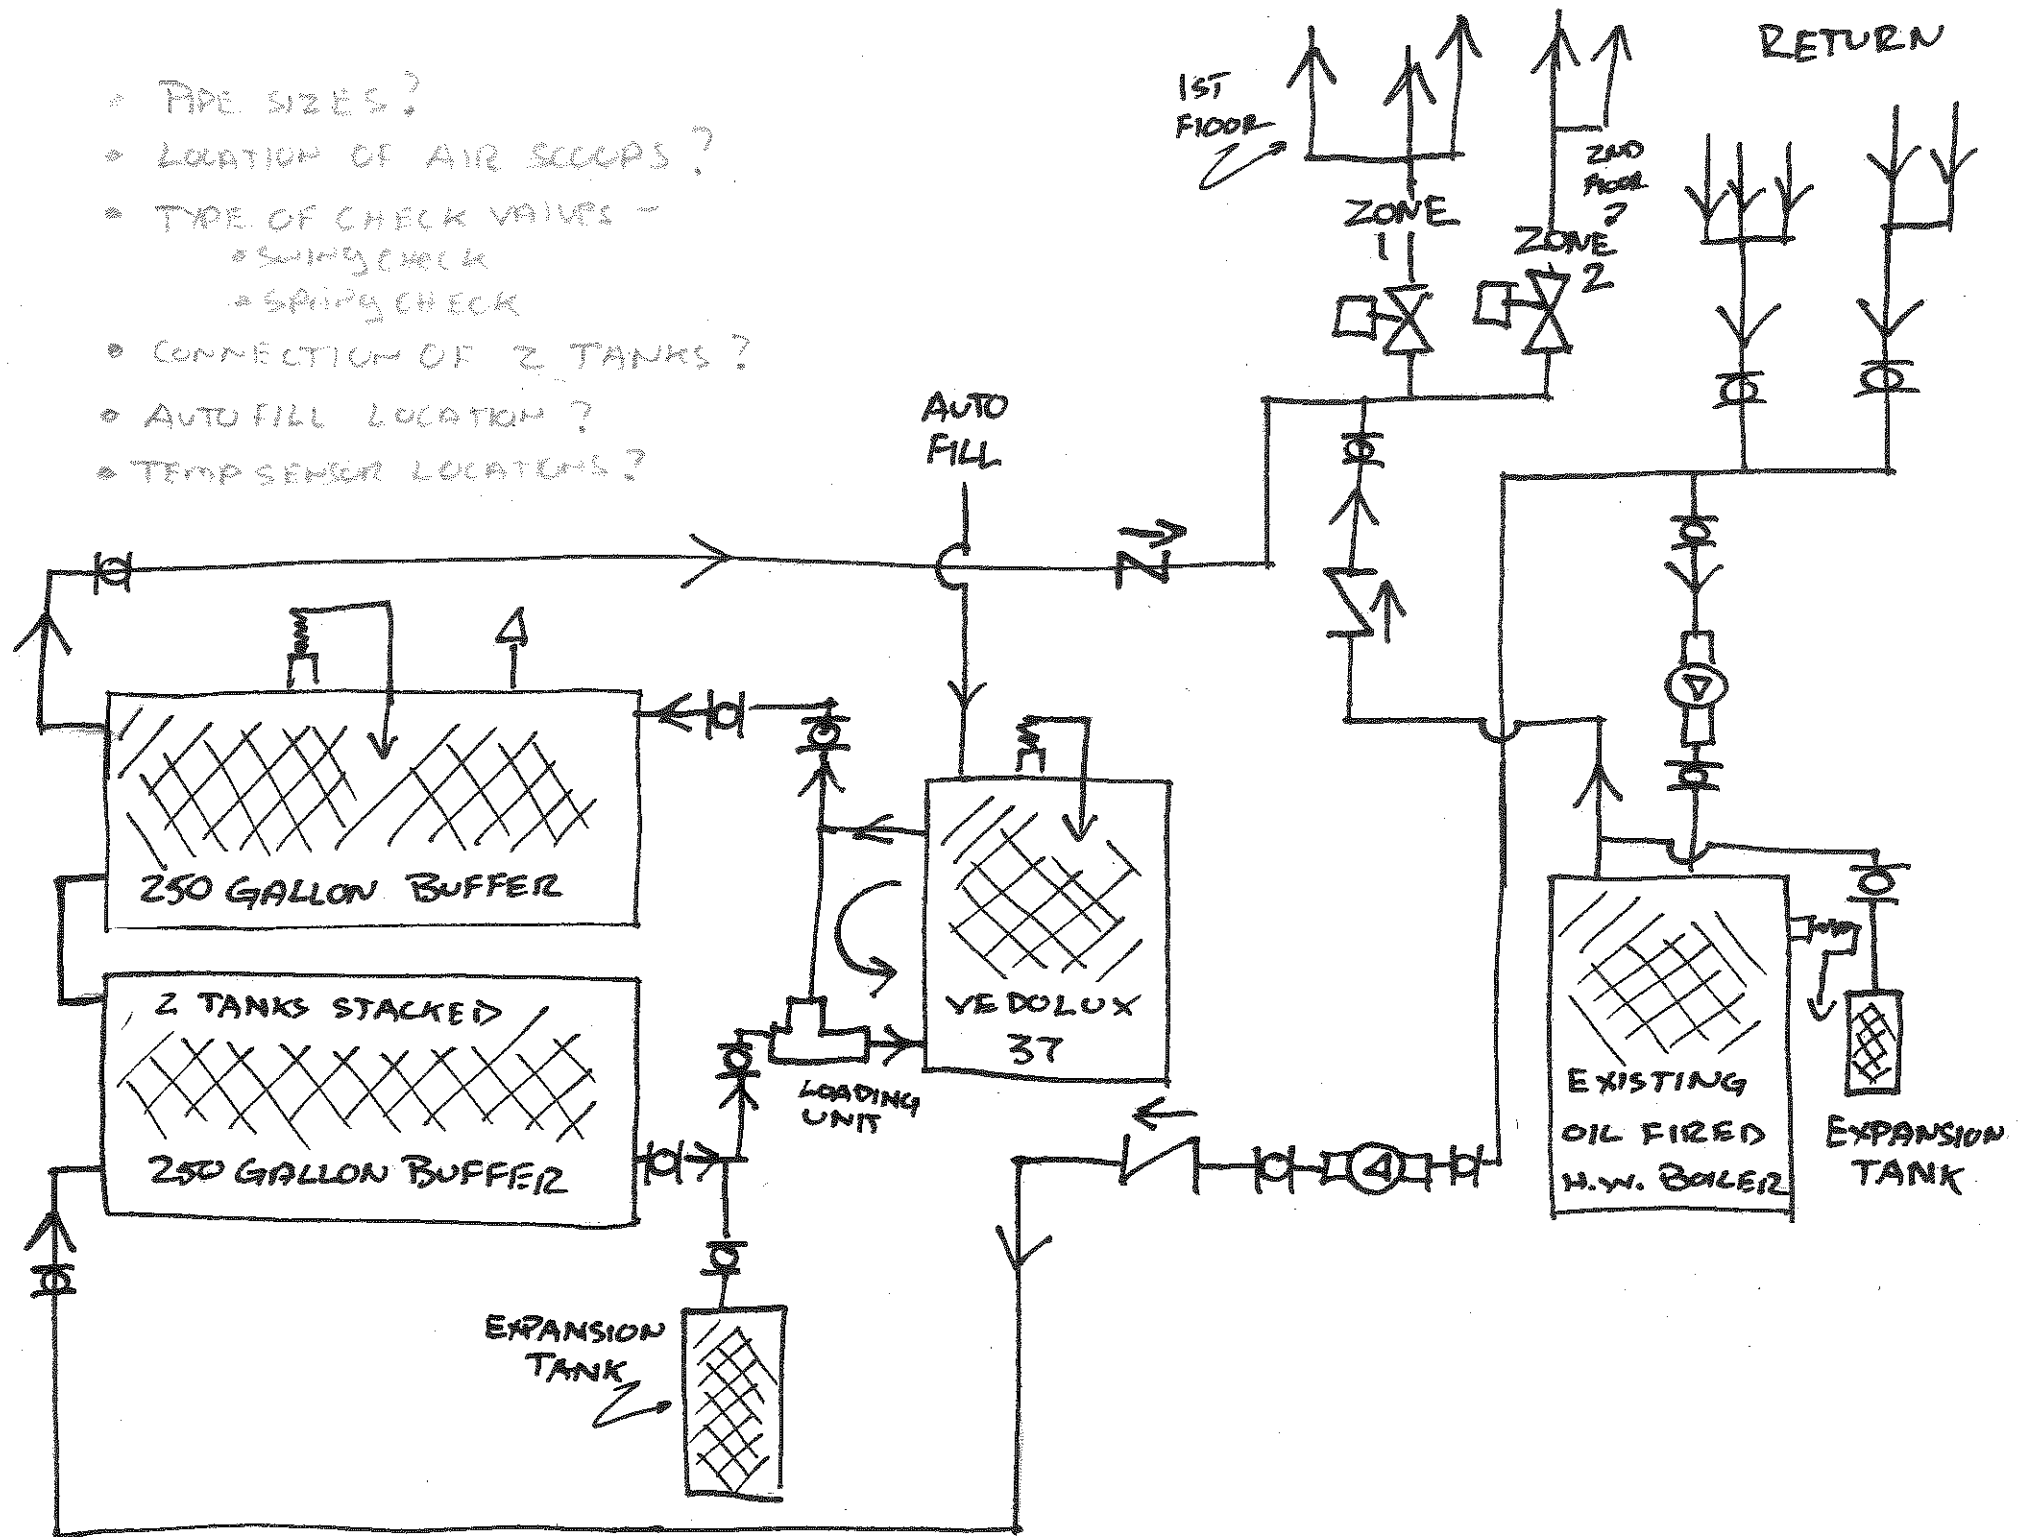 • PIPE SIZES?
• LOCATION OF AIR SCOOPS?
• TYPE OF CHECK VALVES -
• SWING CHECK
• SPRING CHECK
• CONNECTION OF 2 TANKS?
• AUTO FILL LOCATION?
• TEMP SENSOR LOCATIONS?
1ST
FLOOR
ZONE
1
2ND
FLOOR
?
ZONE
2
RETURN
AUTO
FILL
250 GALLON BUFFER
2 TANKS STACKED
250 GALLON BUFFER
VEDOLUX
37
LOADING
UNIT
EXPANSION
TANK
EXISTING
OIL FIRED
H.W. BOILER
EXPANSION
TANK